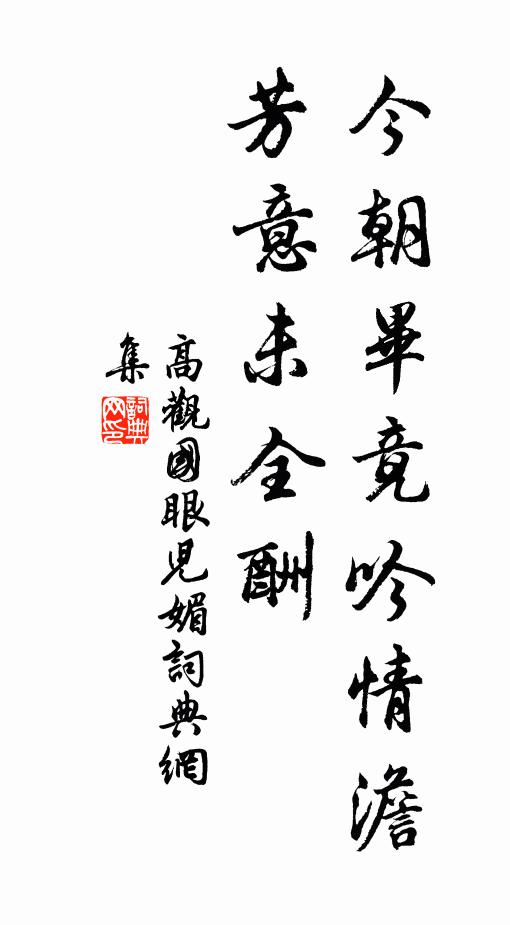 今朝畢竟吟情澹
芳意未全酬
高觀國眼兒媚詞典網
集
詞典
网印